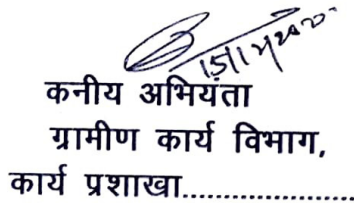 कनीय अभियंता
ग्रामीण कार्य विभाग,
कार्य प्रशाखा..............................